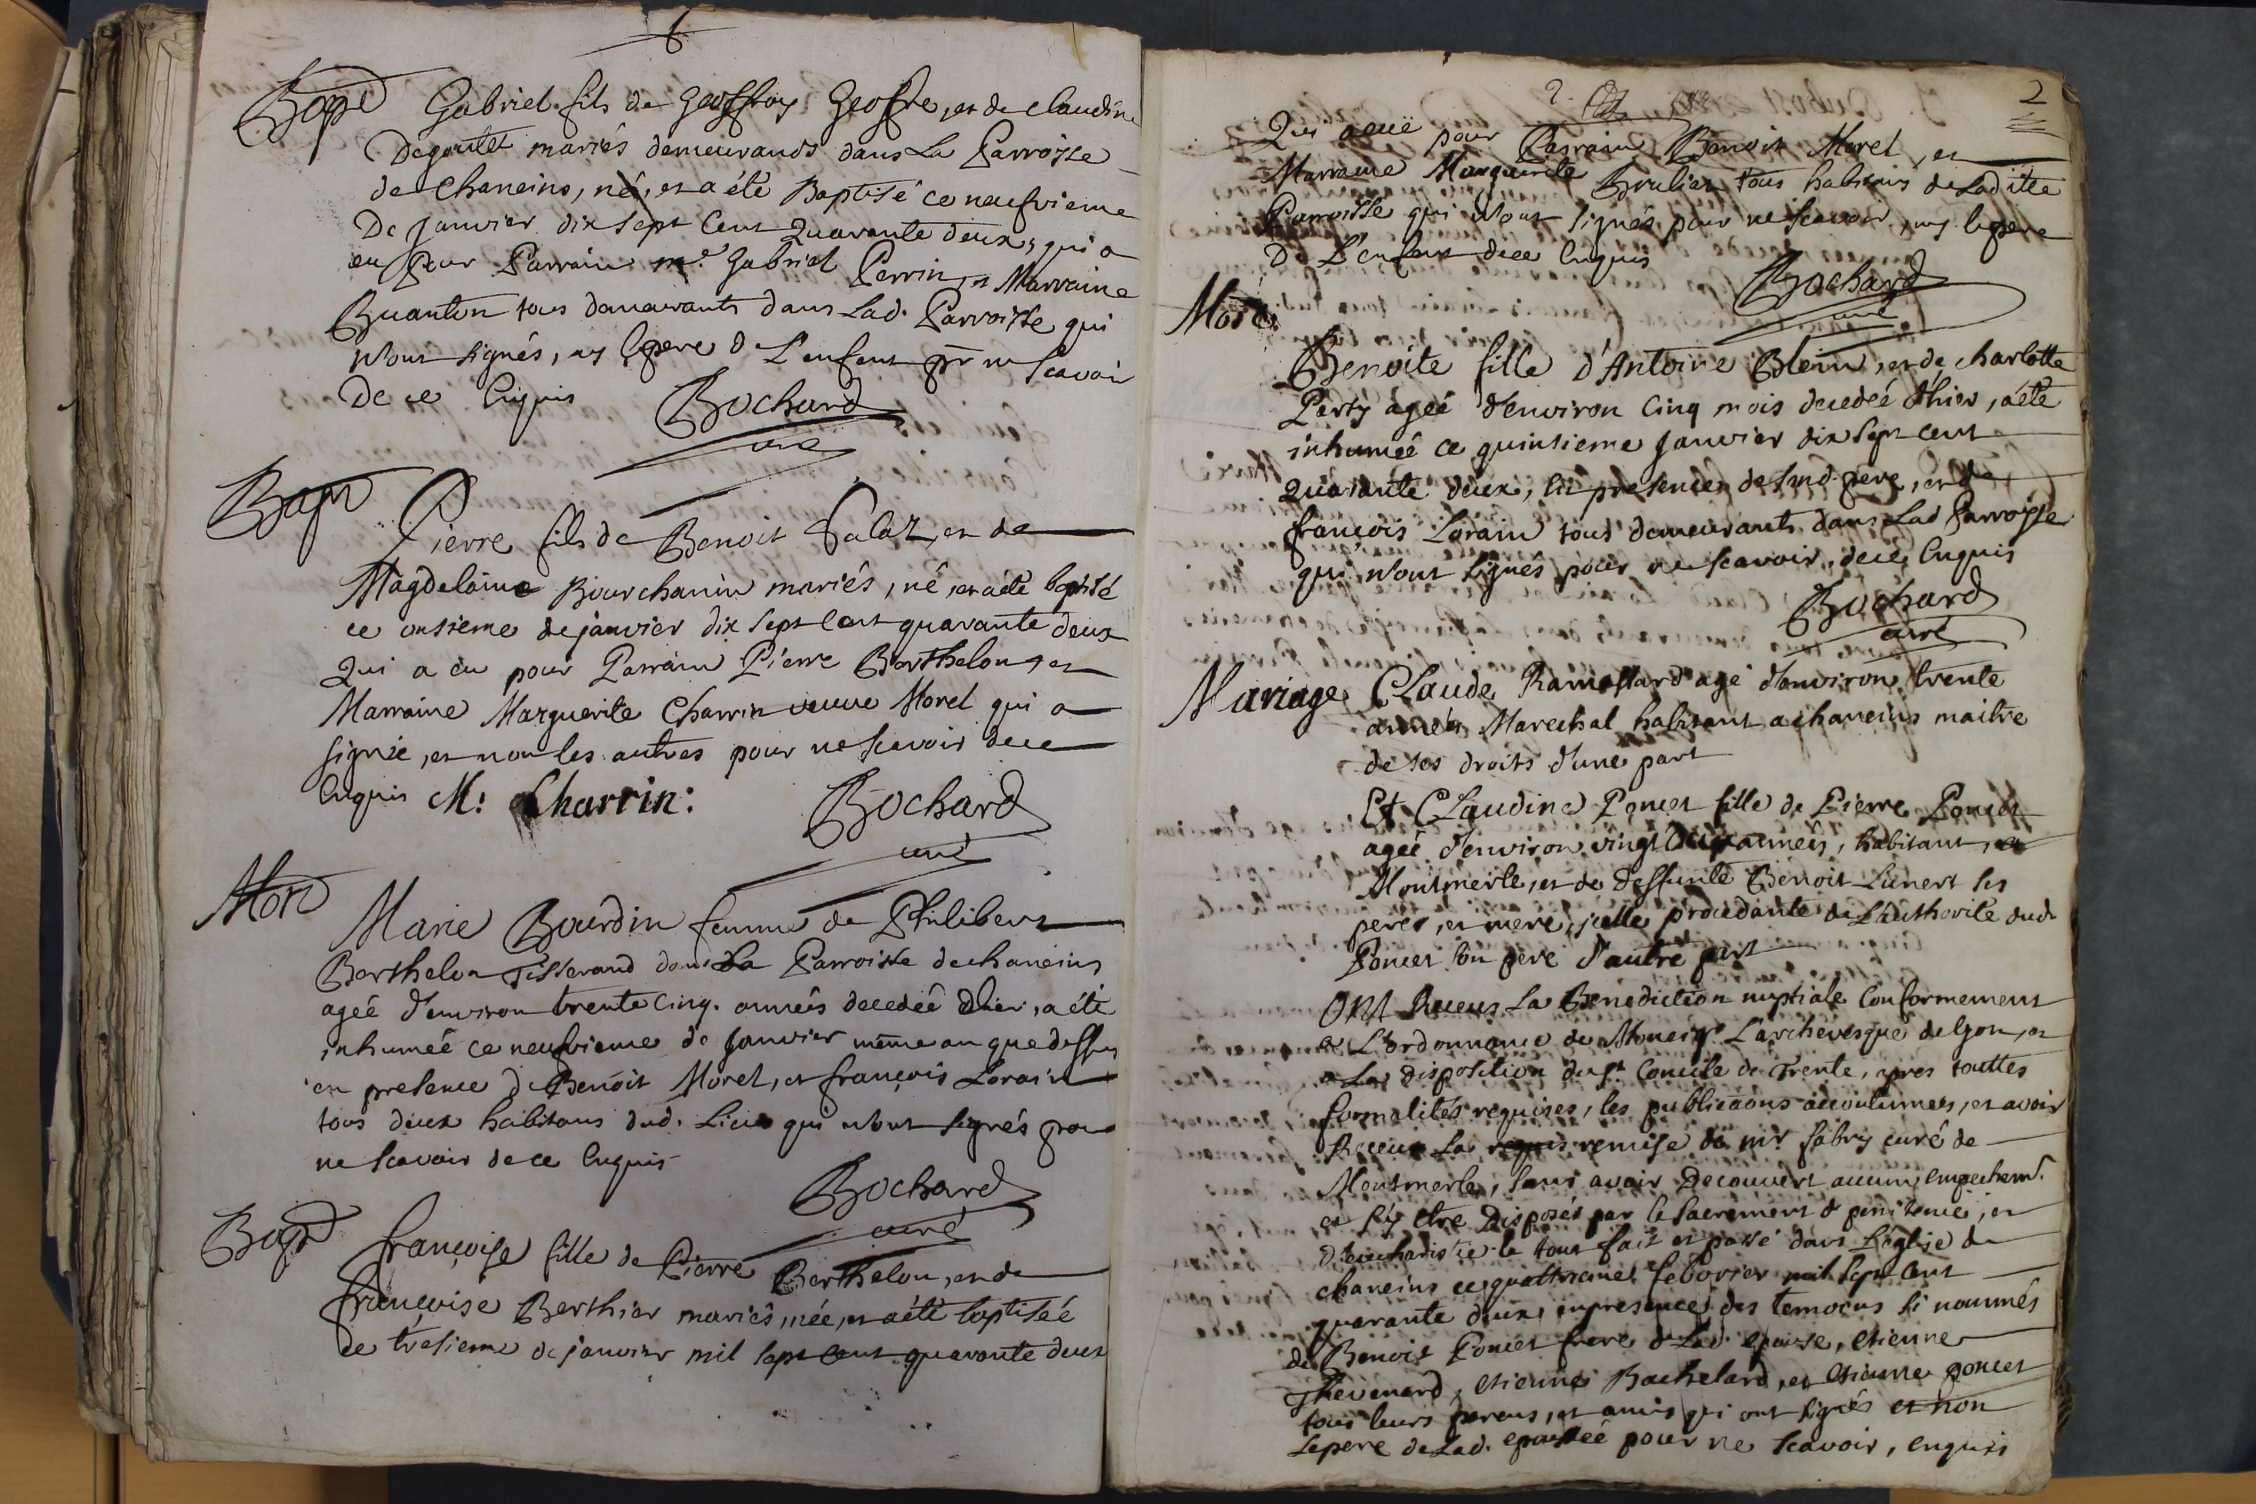 Bapt Gabriel fils de Geoffroy Geofre, et de claudine
Degoutet mariés demeurands dans La Parroisse
de Chaneins, né, et a été Baptisé ce neufvieme
De Janvier dix sept Cent Quarante deux, qui a
eu Pour Parrain me Gabriel Perrin, et Marraine
Buanton tous demeurants dans Lad. Parroisse qui
n'ont signés, ny le pere de L'enfant pr ne scavoir
De ce Enquis Bochard
curé
Bapt Pierre fils de Benoit Falaz, et de
Magdelaine Bourchanin mariés, né, et a été baptisé
ce onsieme de janvier dix sept Cent quarante deux
Qui a eu pour Parrain Pierre Berthelon, et
Marraine Marguerite Charrin veuve Morel qui a
signée, et non les autres pour ne scavoir de ce
Enquis M: Charrin: Bochard
curé
Mort Marie Bourdin femme de Philibert
Berthelon Tisserand dans La Parroisse de chaneins
agée d'environ trente cinq. années decedée d'hier, a été
inhumée ce neufvieme de Janvier même an que dessus
en presence de Benoit Morel, et françois Lorain
tous deux habitans dud. Lieu qui n'ont signés pour
ne scavoir de ce Enquis
Bochard
curé
Bapt françoise fille de Pierre Berthelon, et de
françoise Berthier mariés, née, et a été baptisée
ce tresieme de janvier mil sept cent quarante deux
2
Qui a eue pour Parrain Benoit Morel, et
Marraine Marguerite Brulier tous habitans de Laditte
Parroisse qui n'ont signés pour ne scavoir, ny le pere
De L'enfant de ce Enquis
Bochard
curé
Mort
Benoite fille d'Antoine Blein, et de charlotte
Perty agée d'environ Cinq mois decedée d'hier, a été
inhumée ce quinsieme Janvier dix sept cent
quarante deux, En presence de sond. pere, et de
françois Lorain tous demeurants dans Lad Parroisse
qui n'ont signés pour ne scavoir, de ce Enquis
Bochard
curé
Mariage Claude Ramestard agé d'environ trente
années Marechal habitant a chaneins maitre
de ses droits d'une part
Et Claudine Poncet fille de Pierre Poncet
agée d'environ vingt années, habitant, a
Montmerle, et de deffunte Benoit Lienert ses
peres, et mere, icelle procedante de L'authorité dud.
Poncet son pere d'autre part
ONt Receus La Benediction nuptiale Conformement
a L'ordonnance de Monseigr L'archevesque de lyon, et
a La disposition du st Concile de Trente, apres touttes
formalités requises, les publicãons accoutumées, et avoir
Receue La requis remise de mr fabry curé de
Montmerle, sans avoir Decouvert aucun empechemt.
et s'y etre Disposés par le sacrement de penitence, et
d'eucharistie le tout fait et passé dans L'eglise de
chaneins ce quattrieme febvrier mil sept Cent
quarante deux, en presence des temoins si nommés
de Benoit Poncet frere de Lad. epouse, etienne
Thevenard, etienne Bachelard, et etienne poncet
tous leurs parens, et amis qui ont signés et non
Le pere de Lad. epousée pour ne scavoir, enquis